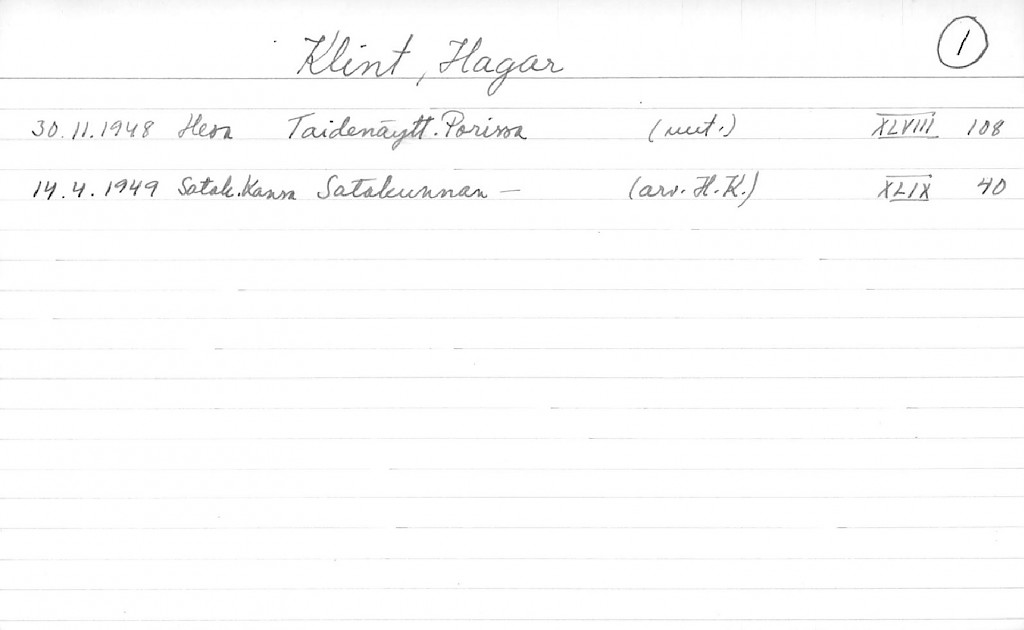 Klint, Hagar 1
30.11.1948 Hesa Taidenäytt. Porissa (uut.) XLVIII 108
14.4.1949 Satak. Kansa Satakunnan — (arv. H.K.) XLIX 40